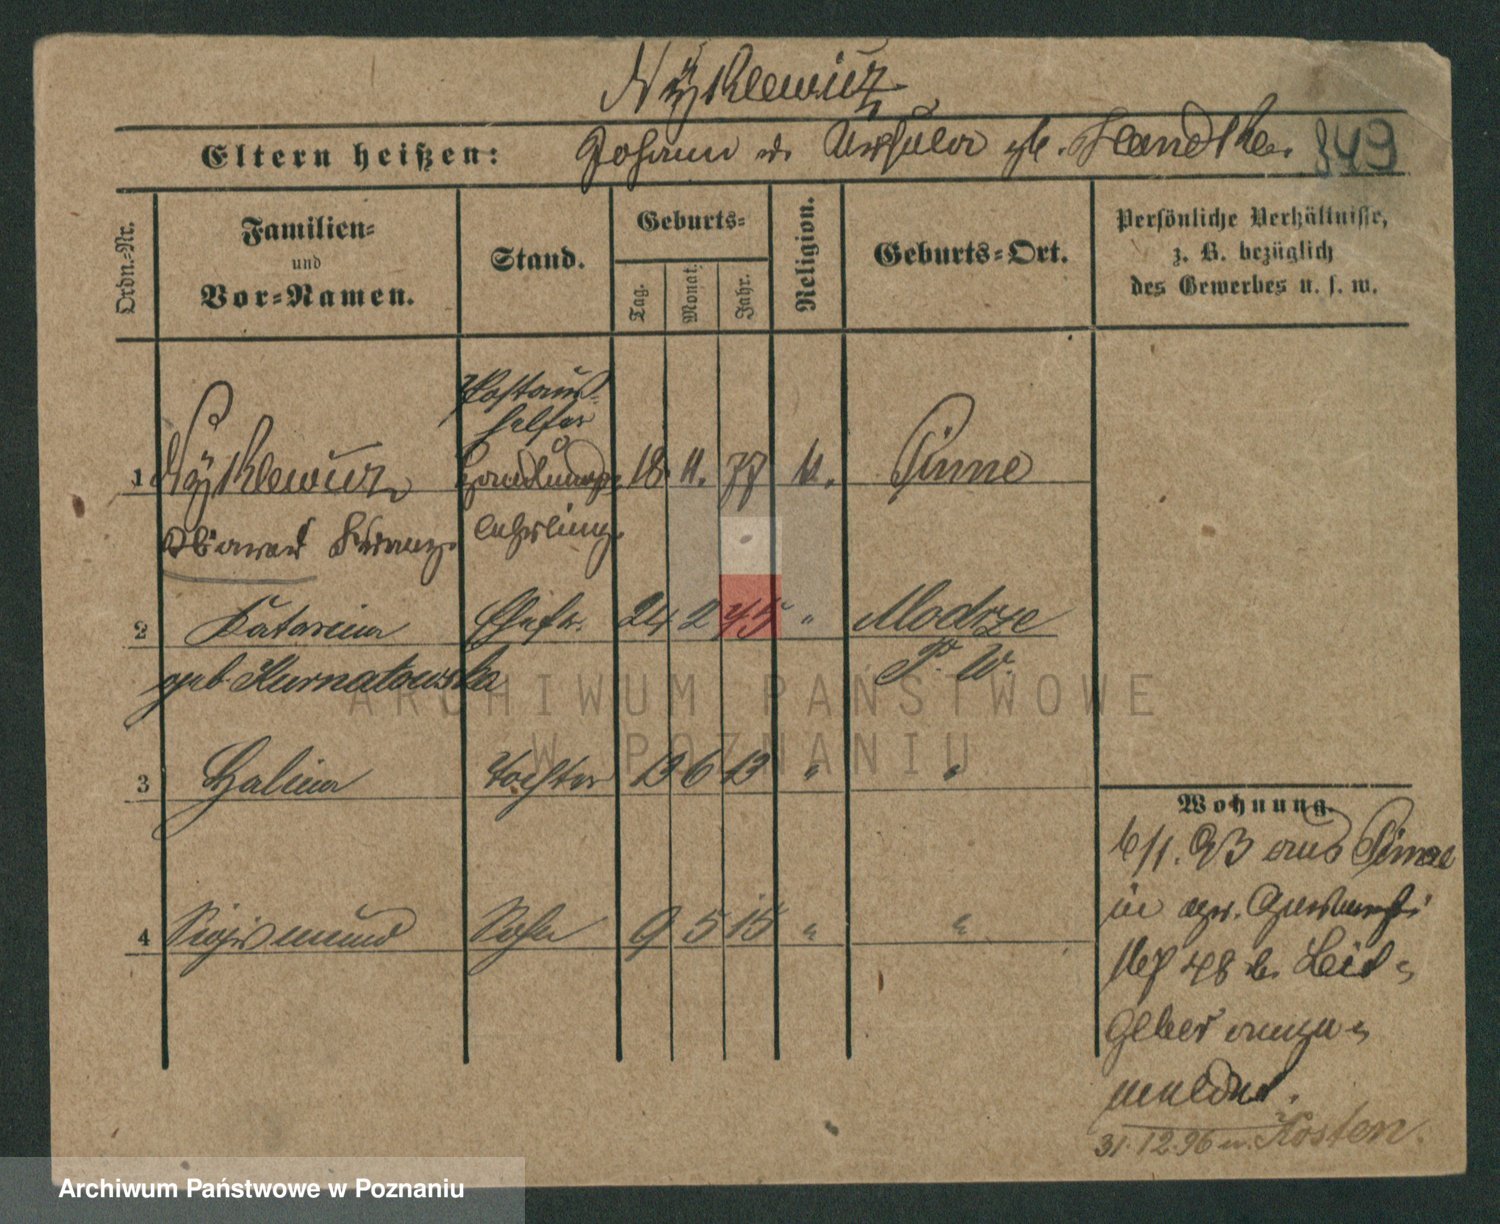 Nÿklewicz
Eltern heißen: Johann u. Ursula geb. Handke. 849
Ordn.-Nr.
Familien-
und
Vor-Namen.
Stand.
Geburts-
Tag.
Monat.
Jahr.
Religion.
Geburts-Ort.
Persönliche Verhältnisse,
z. B. bezüglich
des Gewerbes u. s. w.
Postaus-
helfer
1 Nÿklewicz Handlungs- 18. 11. 77 k. Pinne
Franz. lehrling.
2 Katarina Ehefr. 24 2 75 " Modrze
geb. Kurnatowska P. W.
3 Halina Tochter 13 6 13 " "
4 Sigismund Sohn 9 5 15 " "
Wohnung.
6/1. 93 aus Pinne
in
48 b. Leit-
geber ange-
meldet.
31.12.96 n. Kosten.
ARCHIWUM PAŃSTWOWE
W POZNANIU
Archiwum Państwowe w Poznaniu